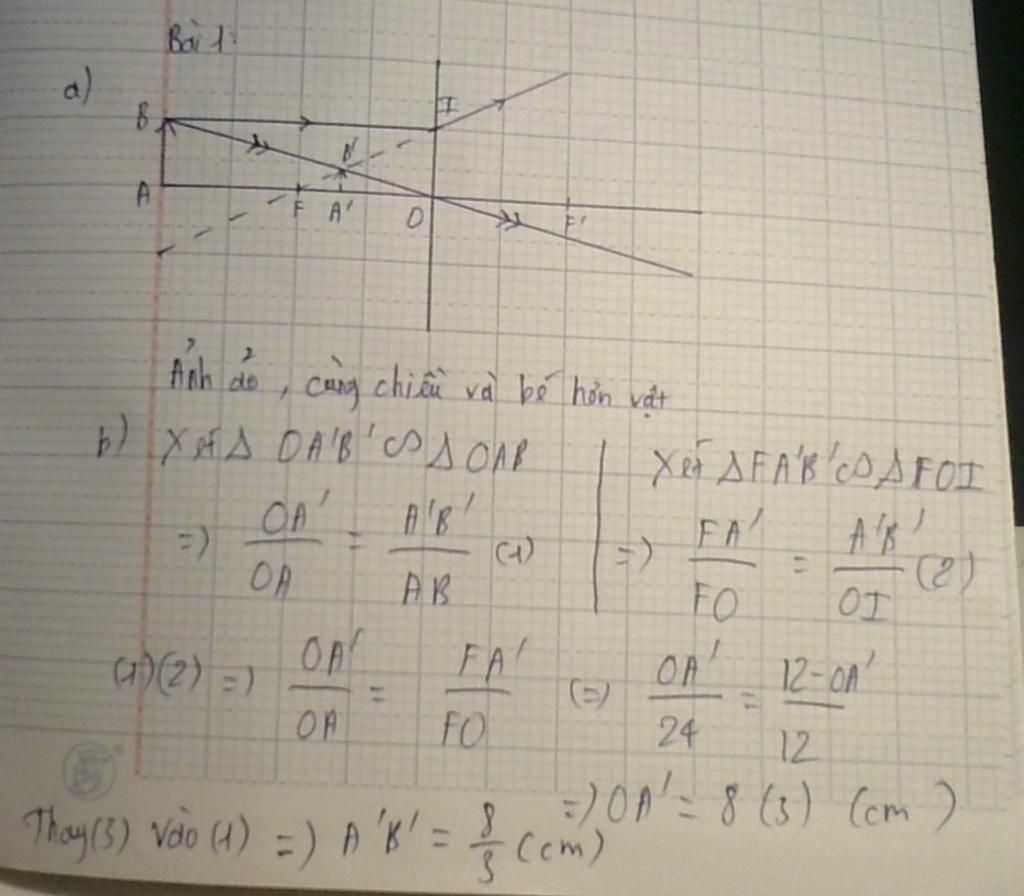 Bài 1:
a)
B I
B'
A F A' O F'
Ảnh ảo, cùng chiều và bé hơn vật
b) Xét Δ OA'B' ∽ Δ OAB | Xét Δ FA'B' ∽ Δ FOI
=> OA'/OA = A'B'/AB (1) | => FA'/FO = A'B'/OI (2)
(1)(2) => OA'/OA = FA'/FO (=) OA'/24 = 12-OA'/12
=> OA' = 8 (3) (cm)
Thay (3) vào (1) => A'B' = 8/3 (cm)